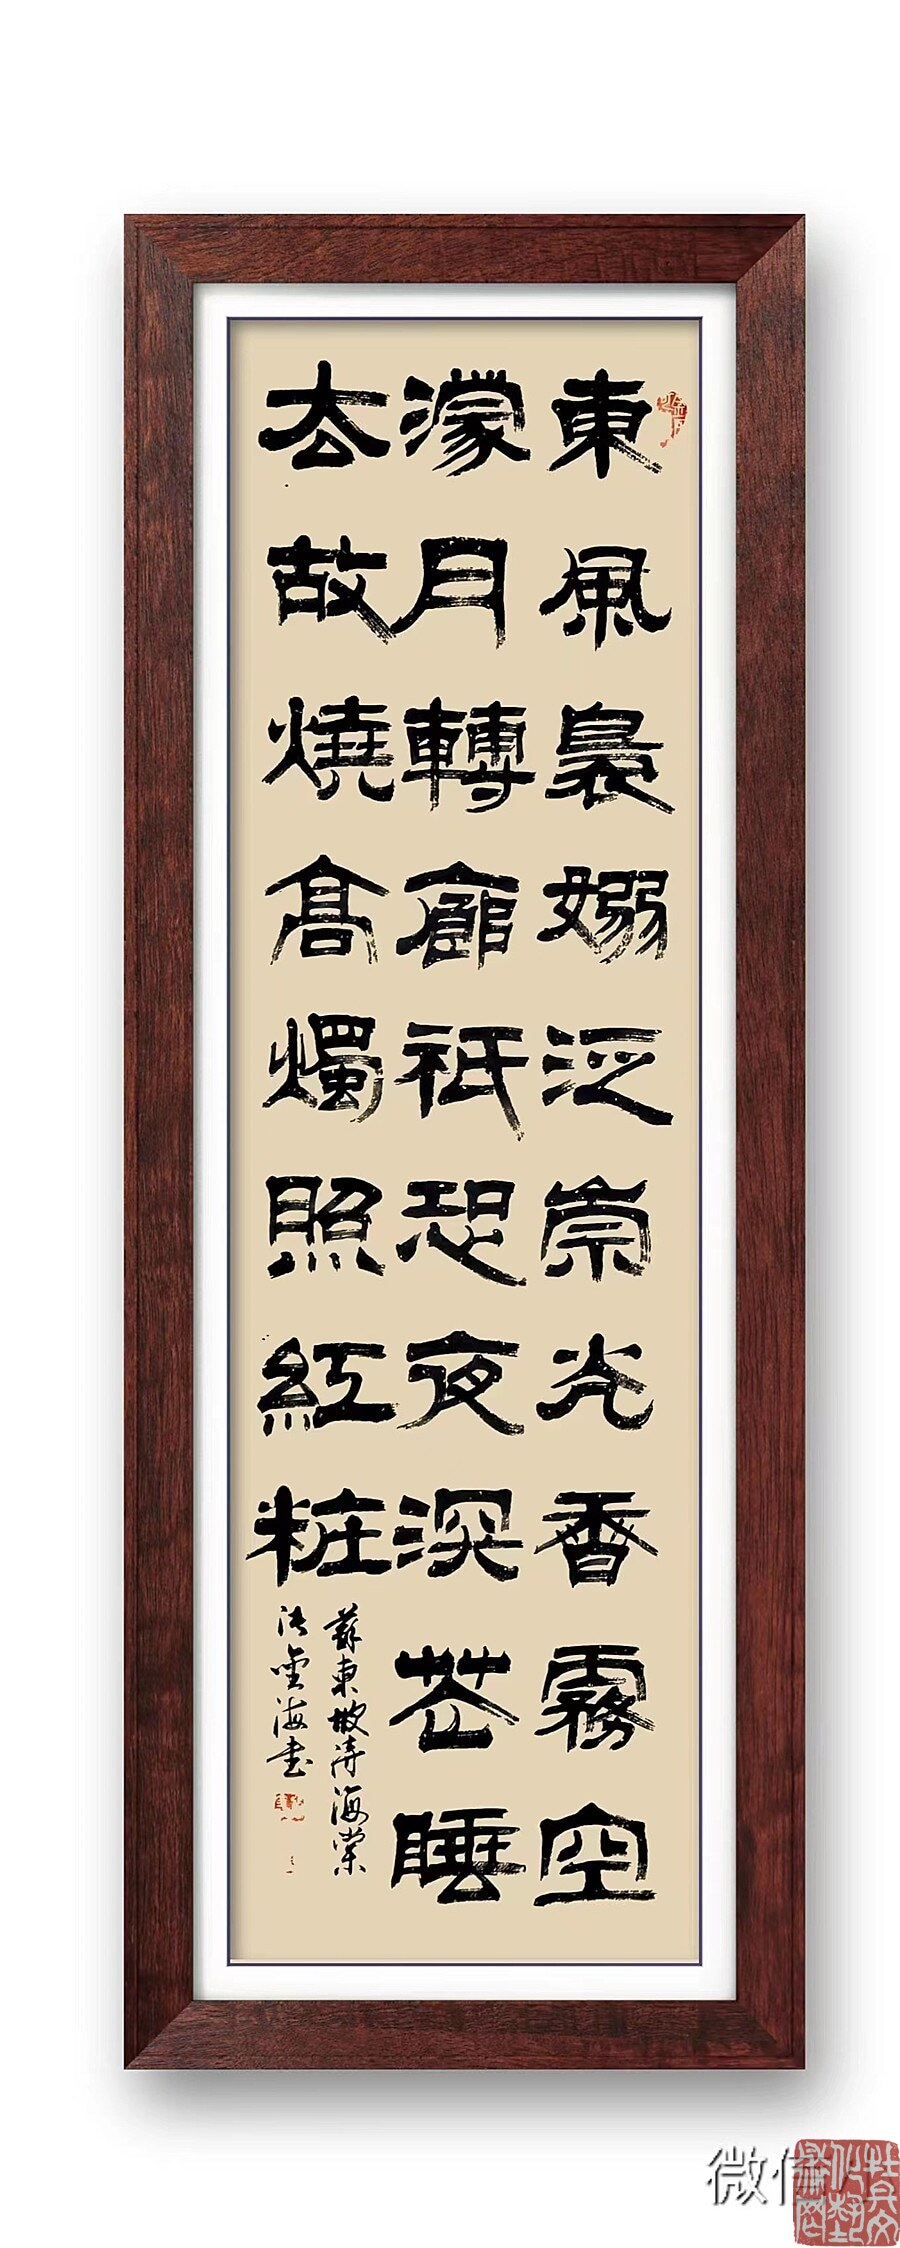 東風裊嫋泛崇光香霧空
濛月轉廊祇恐夜深花睡
去故燒高燭照紅粧
蘇東坡詩海棠
海书
微信